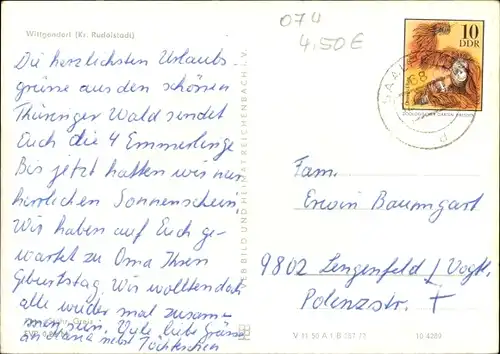 Wittgendorf (Kr. Rudolstadt)
074
4.50€
10
DDR
ZOOLOGISCHER GARTEN DRESDEN
SAALF
68
d
Die herzlichsten Urlaubs
grüsse aus den schönen
Thüringer Wald sendet
Euch die 4 Emmerlinge
Bis jetzt hatten wir nur
herrlichen Sonnenschein
Wir haben auf Euch ge-
wartet zu Oma Ihren
Geburtstag. Wir wollten doch
alle wieder mal zusam-
men sein. Viele liebe Grüsse
an Maria nebst Töchterchen
VEB BILD UND HEIMAT REICHENBACH i. V.
Fam.
Erwin Baumgart
9802 Lengenfeld / Vogtl.
Polenzstr.
V 11 50 A 1 B
10 4209